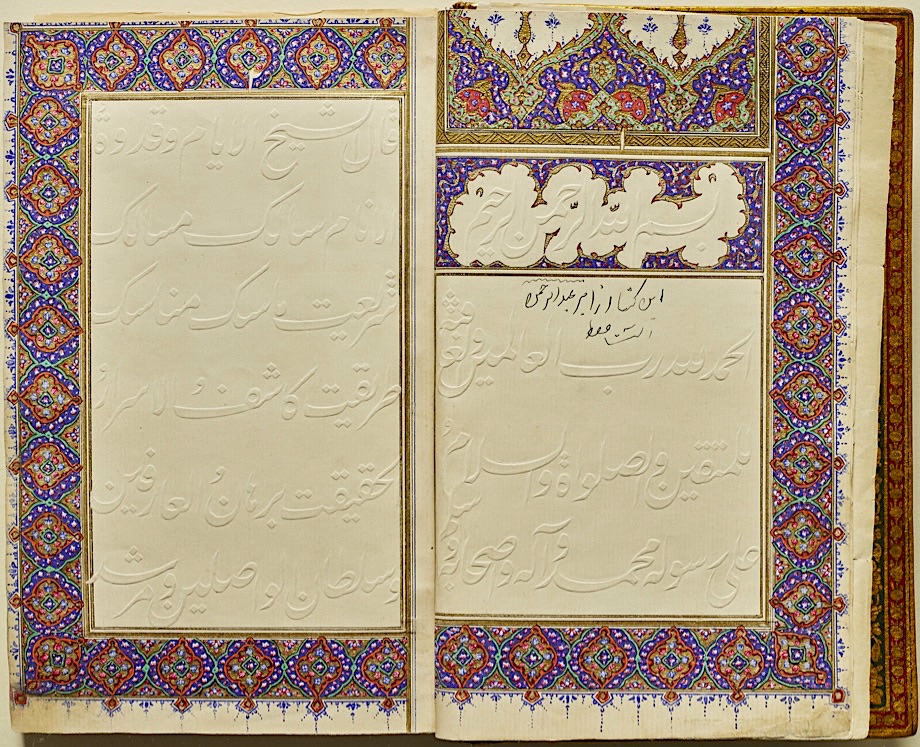 بسم الله الرحمن الرحیم
این کتاب از امیر عبدالرحمن
است فقط
الحمد لله رب العالمین والعاقبة
للمتقین والصلوة والسلام
علی رسوله محمد وآله وصحابه
قال الشیخ الایام وقدوة
انام سالک مسالک
شریعت ناسک مناسک
طریقت کاشف الاسرار
حقیقت برهان العارفین
وسلطان الواصلین ومرشد